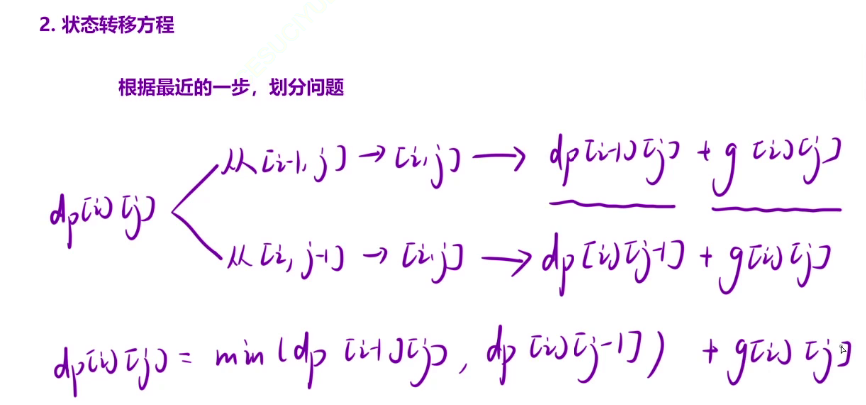 2. 状态转移方程
根据最近的一步，划分问题
从[i-1, j] → [i, j] → dp[i-1][j] + g[i][j]
dp[i][j]
从[i, j-1] → [i, j] → dp[i][j-1] + g[i][j]
dp[i][j] = min(dp[i-1][j], dp[i][j-1]) + g[i][j]